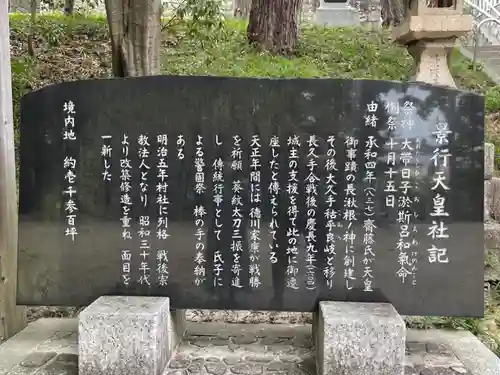 景行天皇社記
祭神 大帯日子淤斯呂和氣命
例祭 十月十五日
由緒 承和四年(八三七)斎藤氏が天皇
御事蹟の長湫根ノ神に創建し
その後大久手祐乎良岐と移り
長久手合戦後の慶長九年(一六〇四)
城主の支援を得て此の地に御遷
座したと傳えられている
天正年間には徳川家康が戦勝
を祈願 菻紋太刀三振を寄進
し 傳統行事として 氏子に
よる警固祭 棒の手の奉納が
ある
明治五年村社に列格 戦後宗
教法人となり 昭和三十年代
より改築修造を重ね 面目を
一新した
境内地 約壱千参百坪